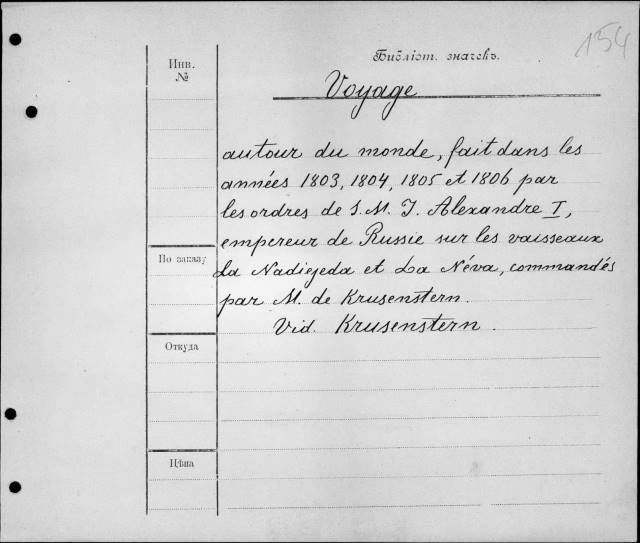 154
Инв.
№
Библіот. значекъ.
Voyage
autour du monde, fait dans les
années 1803, 1804, 1805 et 1806 par
les ordres de S. M. I. Alexandre I,
empereur de Russie sur les vaisseaux
La Nadiejeda et La Néva, commandés
par M. de Krusenstern.
Vid. Krusenstern.
По заказу
Откуда
Цѣна